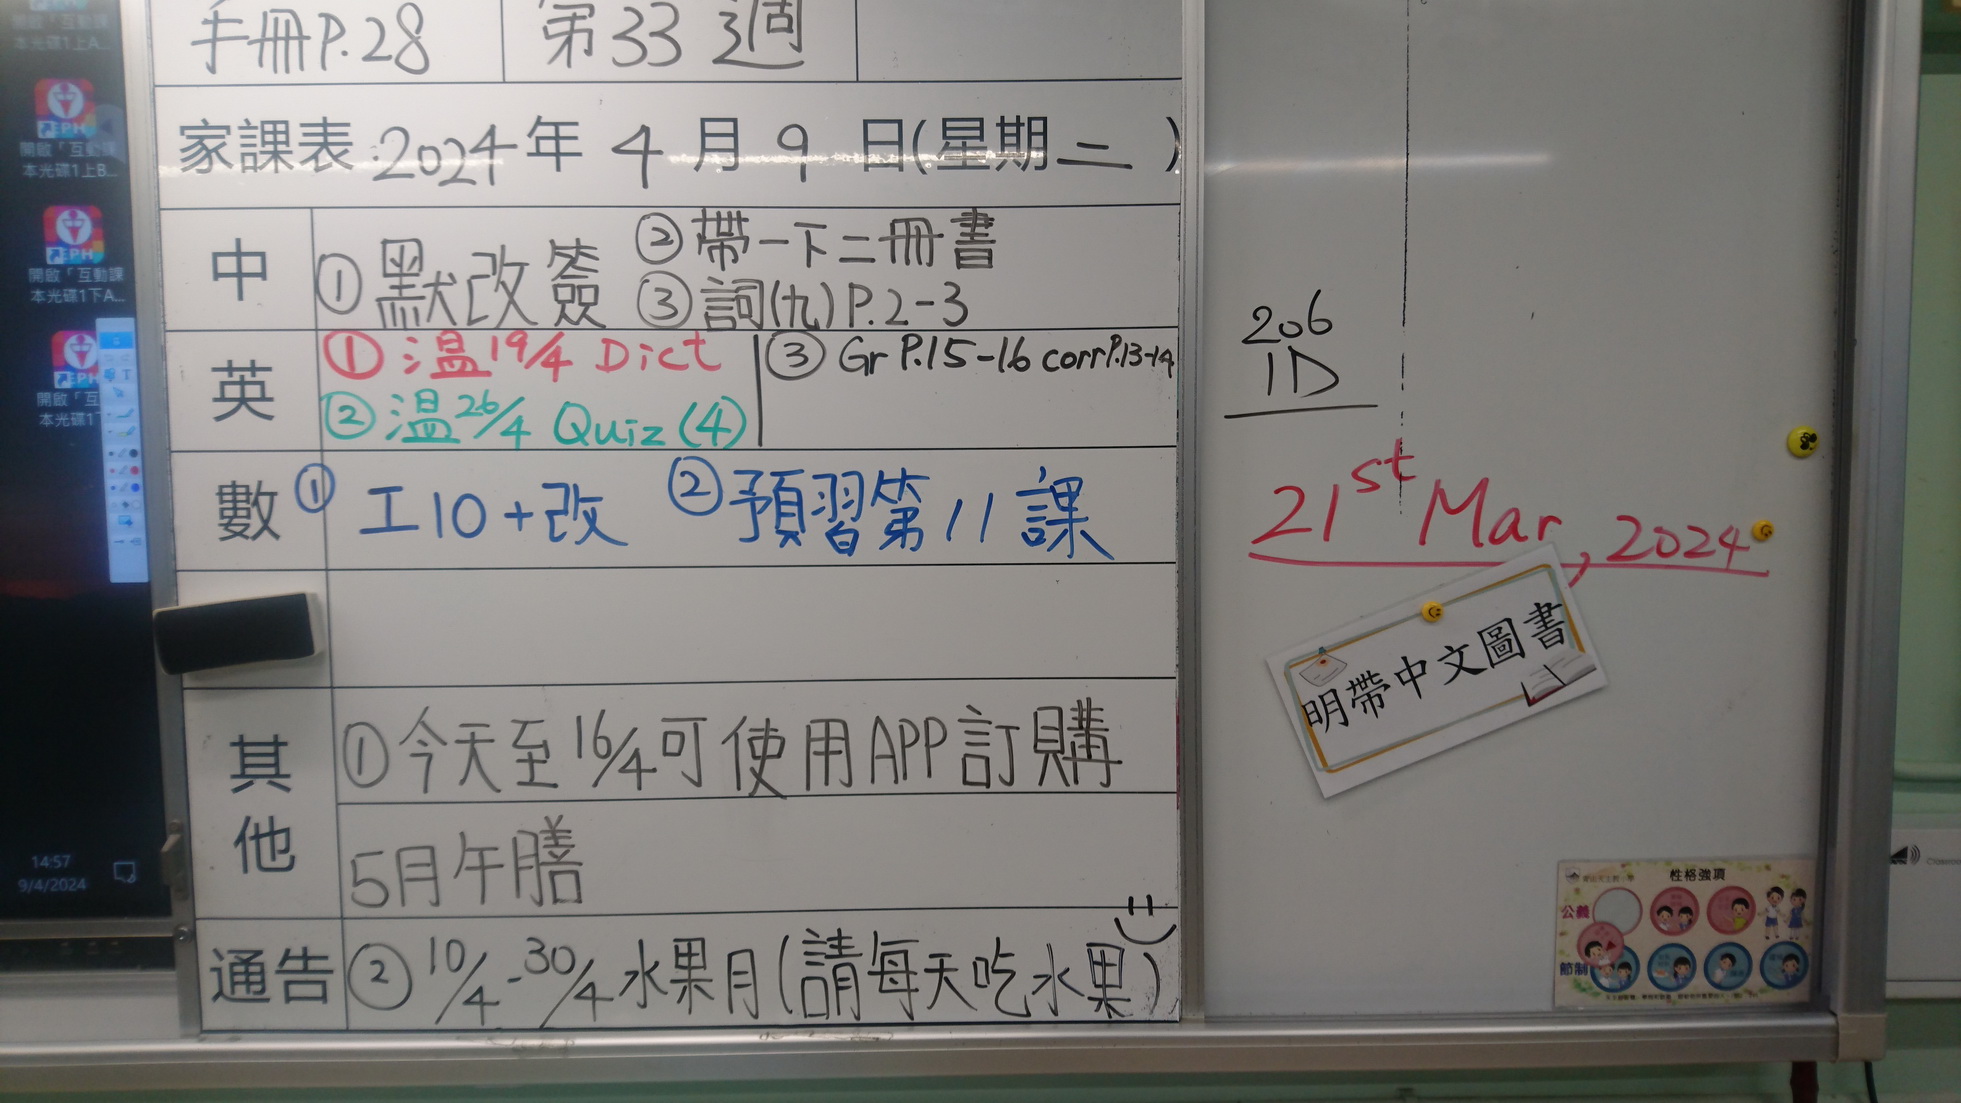 手冊P.28 第33週
家課表 2024年4月9日(星期二)
中 ①默改簽 ②帶一下二冊書
③詞(九)P.2-3
英 ①溫19/4 Dict ③Gr P.15-16 corr P.13-14
②溫26/4 Quiz (4)
數 ①工10+改 ②預習第11課
其他 ①今天至16/4可使用APP訂購
5月午膳
通告 ②10/4-30/4水果月(請每天吃水果)
206
1D
21st Mar, 2024
明帶中文圖書
性格強項
公義
節制
EPH
開啟「互動課
本光碟1上B...
EPH
開啟「互動課
本光碟1下A...
EPH
開啟「互
本光碟1下
14:57
9/4/2024